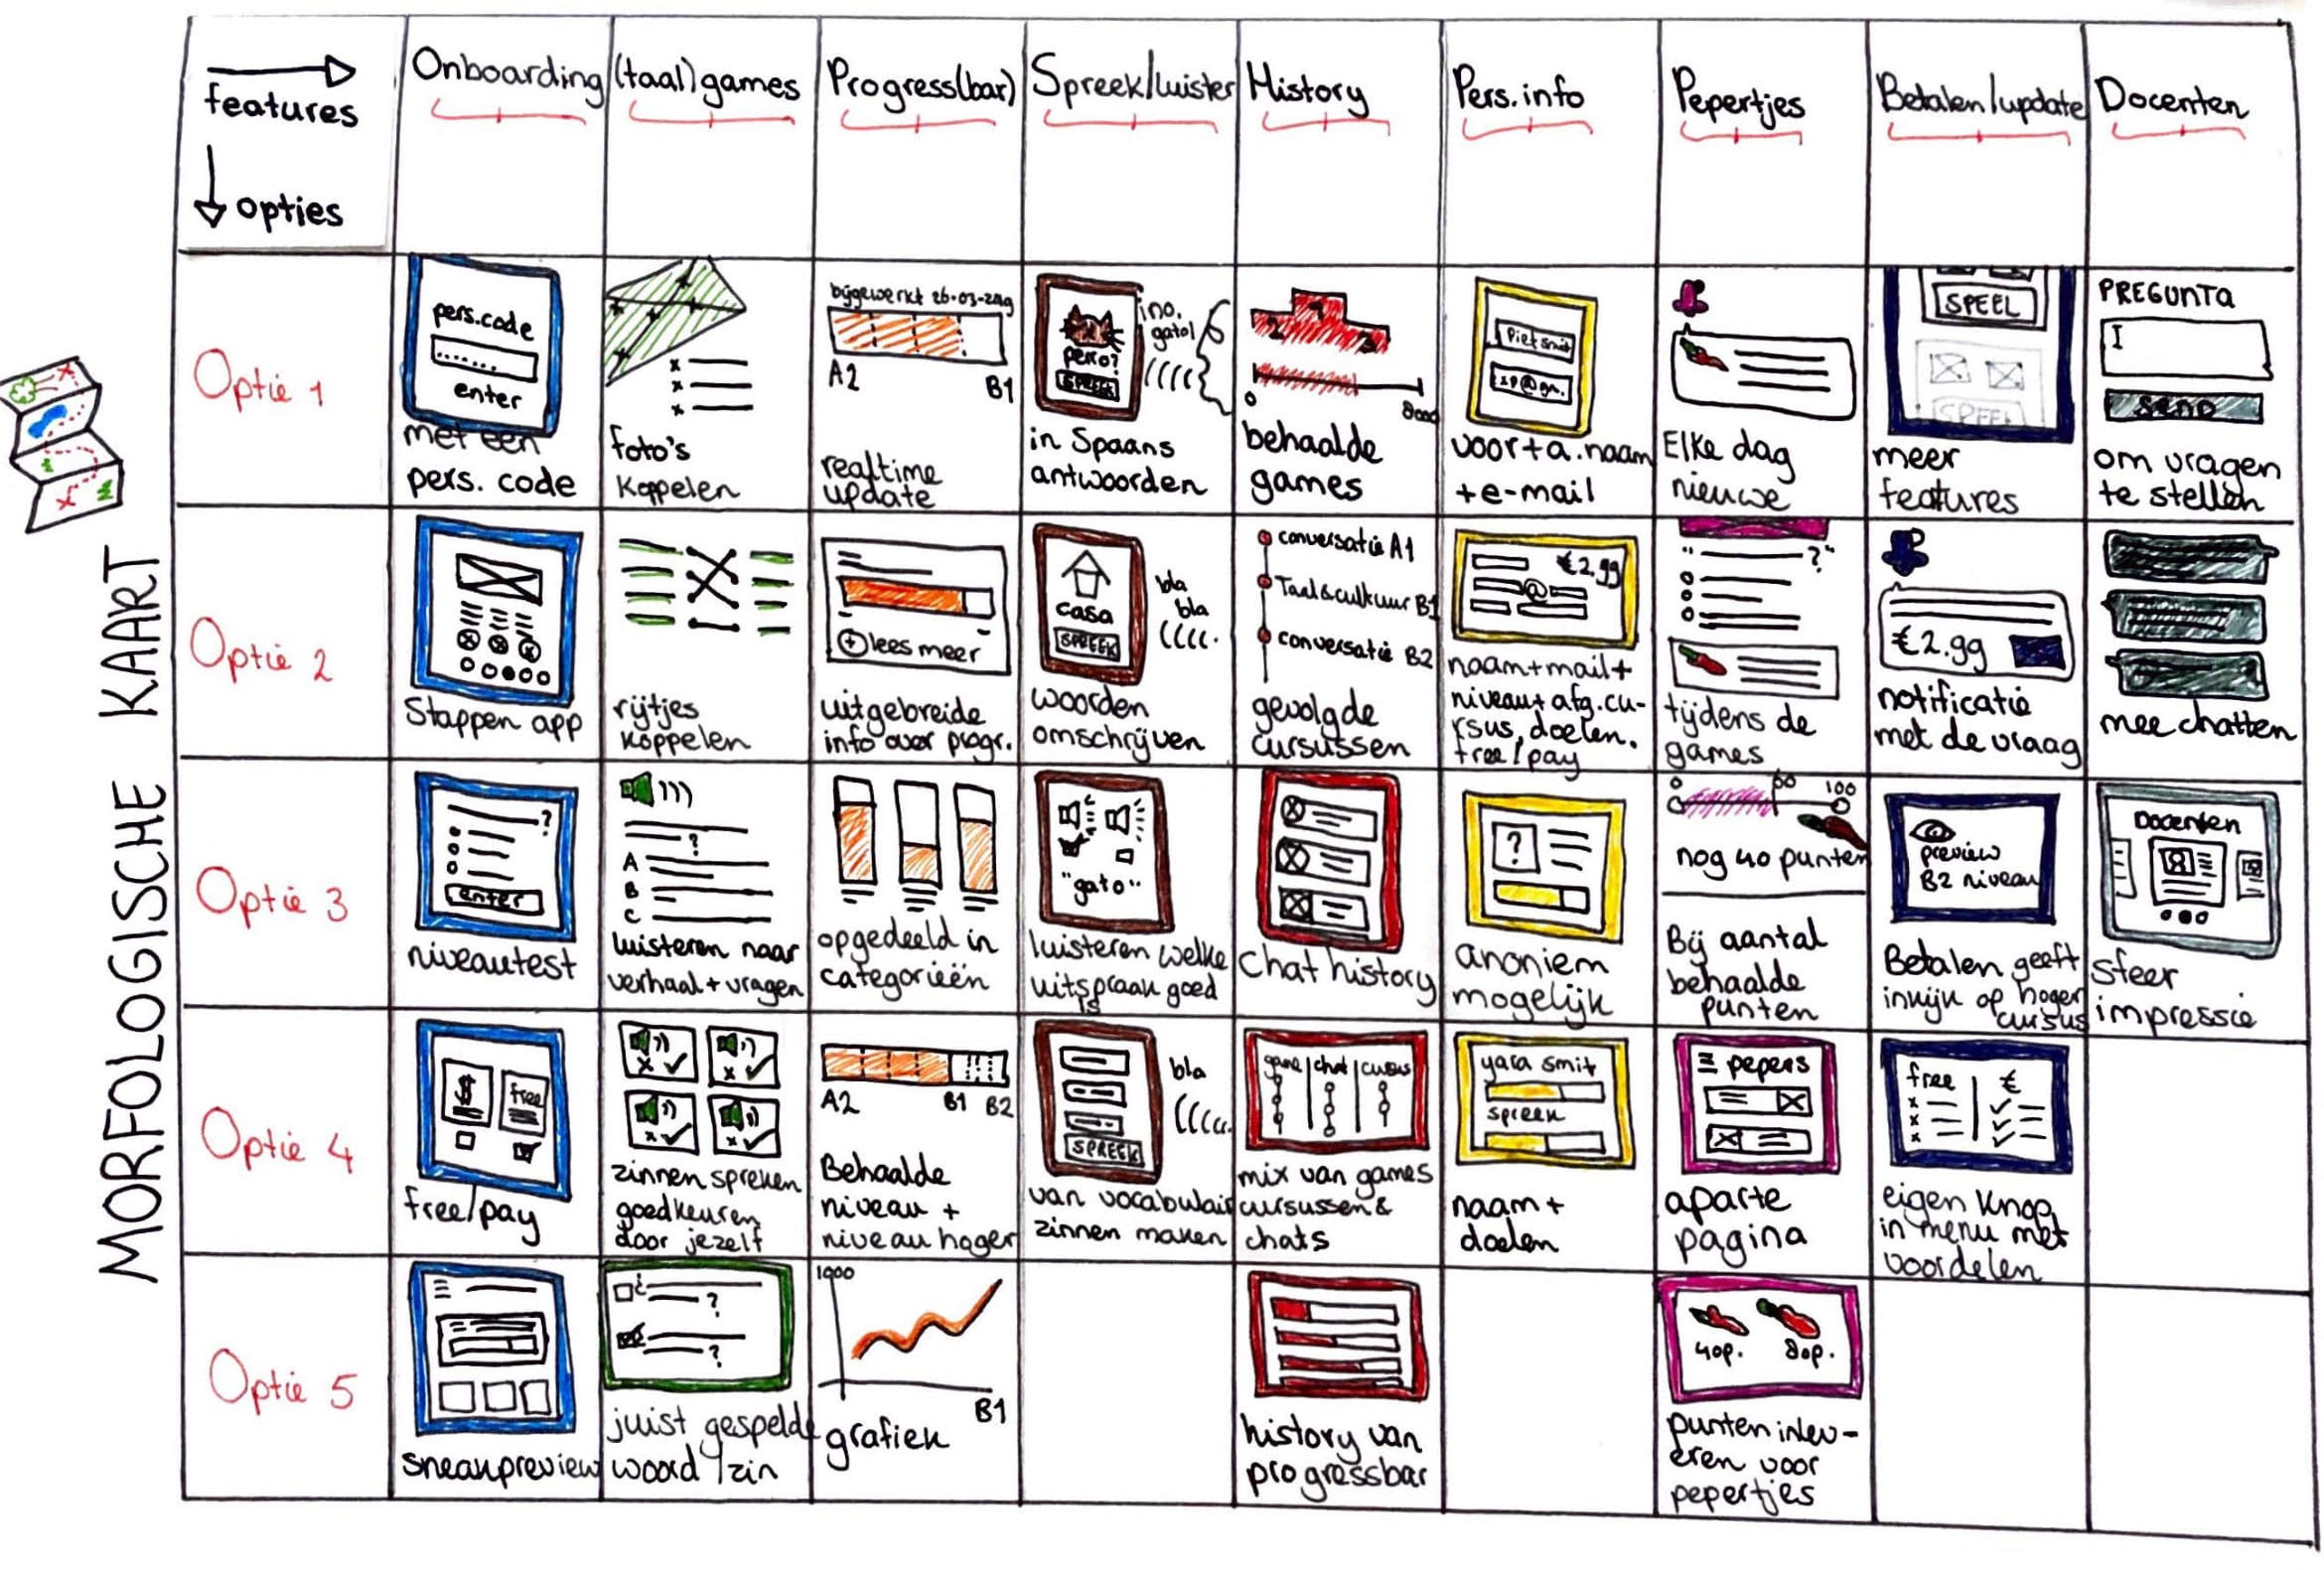 MORFOLOGISCHE KAART
features
opties
Onboarding
(taal)games
Progress(bar)
Spreek/luister
History
Pers. info
Pepertjes
Betalen/update
Docenten
Optie 1
pers.code
......
enter
met een
pers. code
x
x
x
foto's
koppelen
A2
B1
realtime
update
perro?
SPREEK
¡no,
gato!
in Spaans
antwoorden
1
2
3
0
behaalde
games
Piet Smit
voor+a.naam
+e-mail
Elke dag
nieuwe
SPEEL
SPEEL
meer
features
PREGUNTA
I
SEND
om vragen
te stellen
Optie 2
Stappen app
rijtjes
koppelen
+ lees meer
uitgebreide
info over progr.
casa
SPREEK
bla
bla
woorden
omschrijven
conversatie A1
Taal&cultuur B1
conversatie B2
gevolgde
cursussen
€2.99
@
naam+mail+
niveau+afg.cu-
rsus, doelen,
free/pay
" ?"
tijdens de
games
€2.99
notificatie
met de vraag
mee chatten
Optie 3
?
enter
niveautest
?
A
B
C
luisteren naar
verhaal+vragen
opgedeeld in
categorieën
"gato"
luisteren welke
uitspraak goed
is
chat history
?
anoniem
mogelijk
0 60 100
nog 40 punten
Bij aantal
behaalde
punten
preview
B2 niveau
Betalen geeft
inkijk op hoger
cursus
Docenten
sfeer
impressie
Optie 4
$
free
free/pay
zinnen spreken
goedkeuren
door jezelf
A2 B1 B2
Behaalde
niveau +
niveau hoger
SPREEK
bla
van vocabulair
zinnen maken
game chat cursus
mix van games
cursussen &
chats
yara smit
spreek
naam +
doelen
pepers
aparte
pagina
free €
x
x
x
eigen knop
in menu met
voordelen
Optie 5
sneakpreview
¿
?
?
juist gespelde
woord/zin
1000
B1
grafiek
history van
progressbar
40p. 80p.
punten inlev-
eren voor
pepertjes